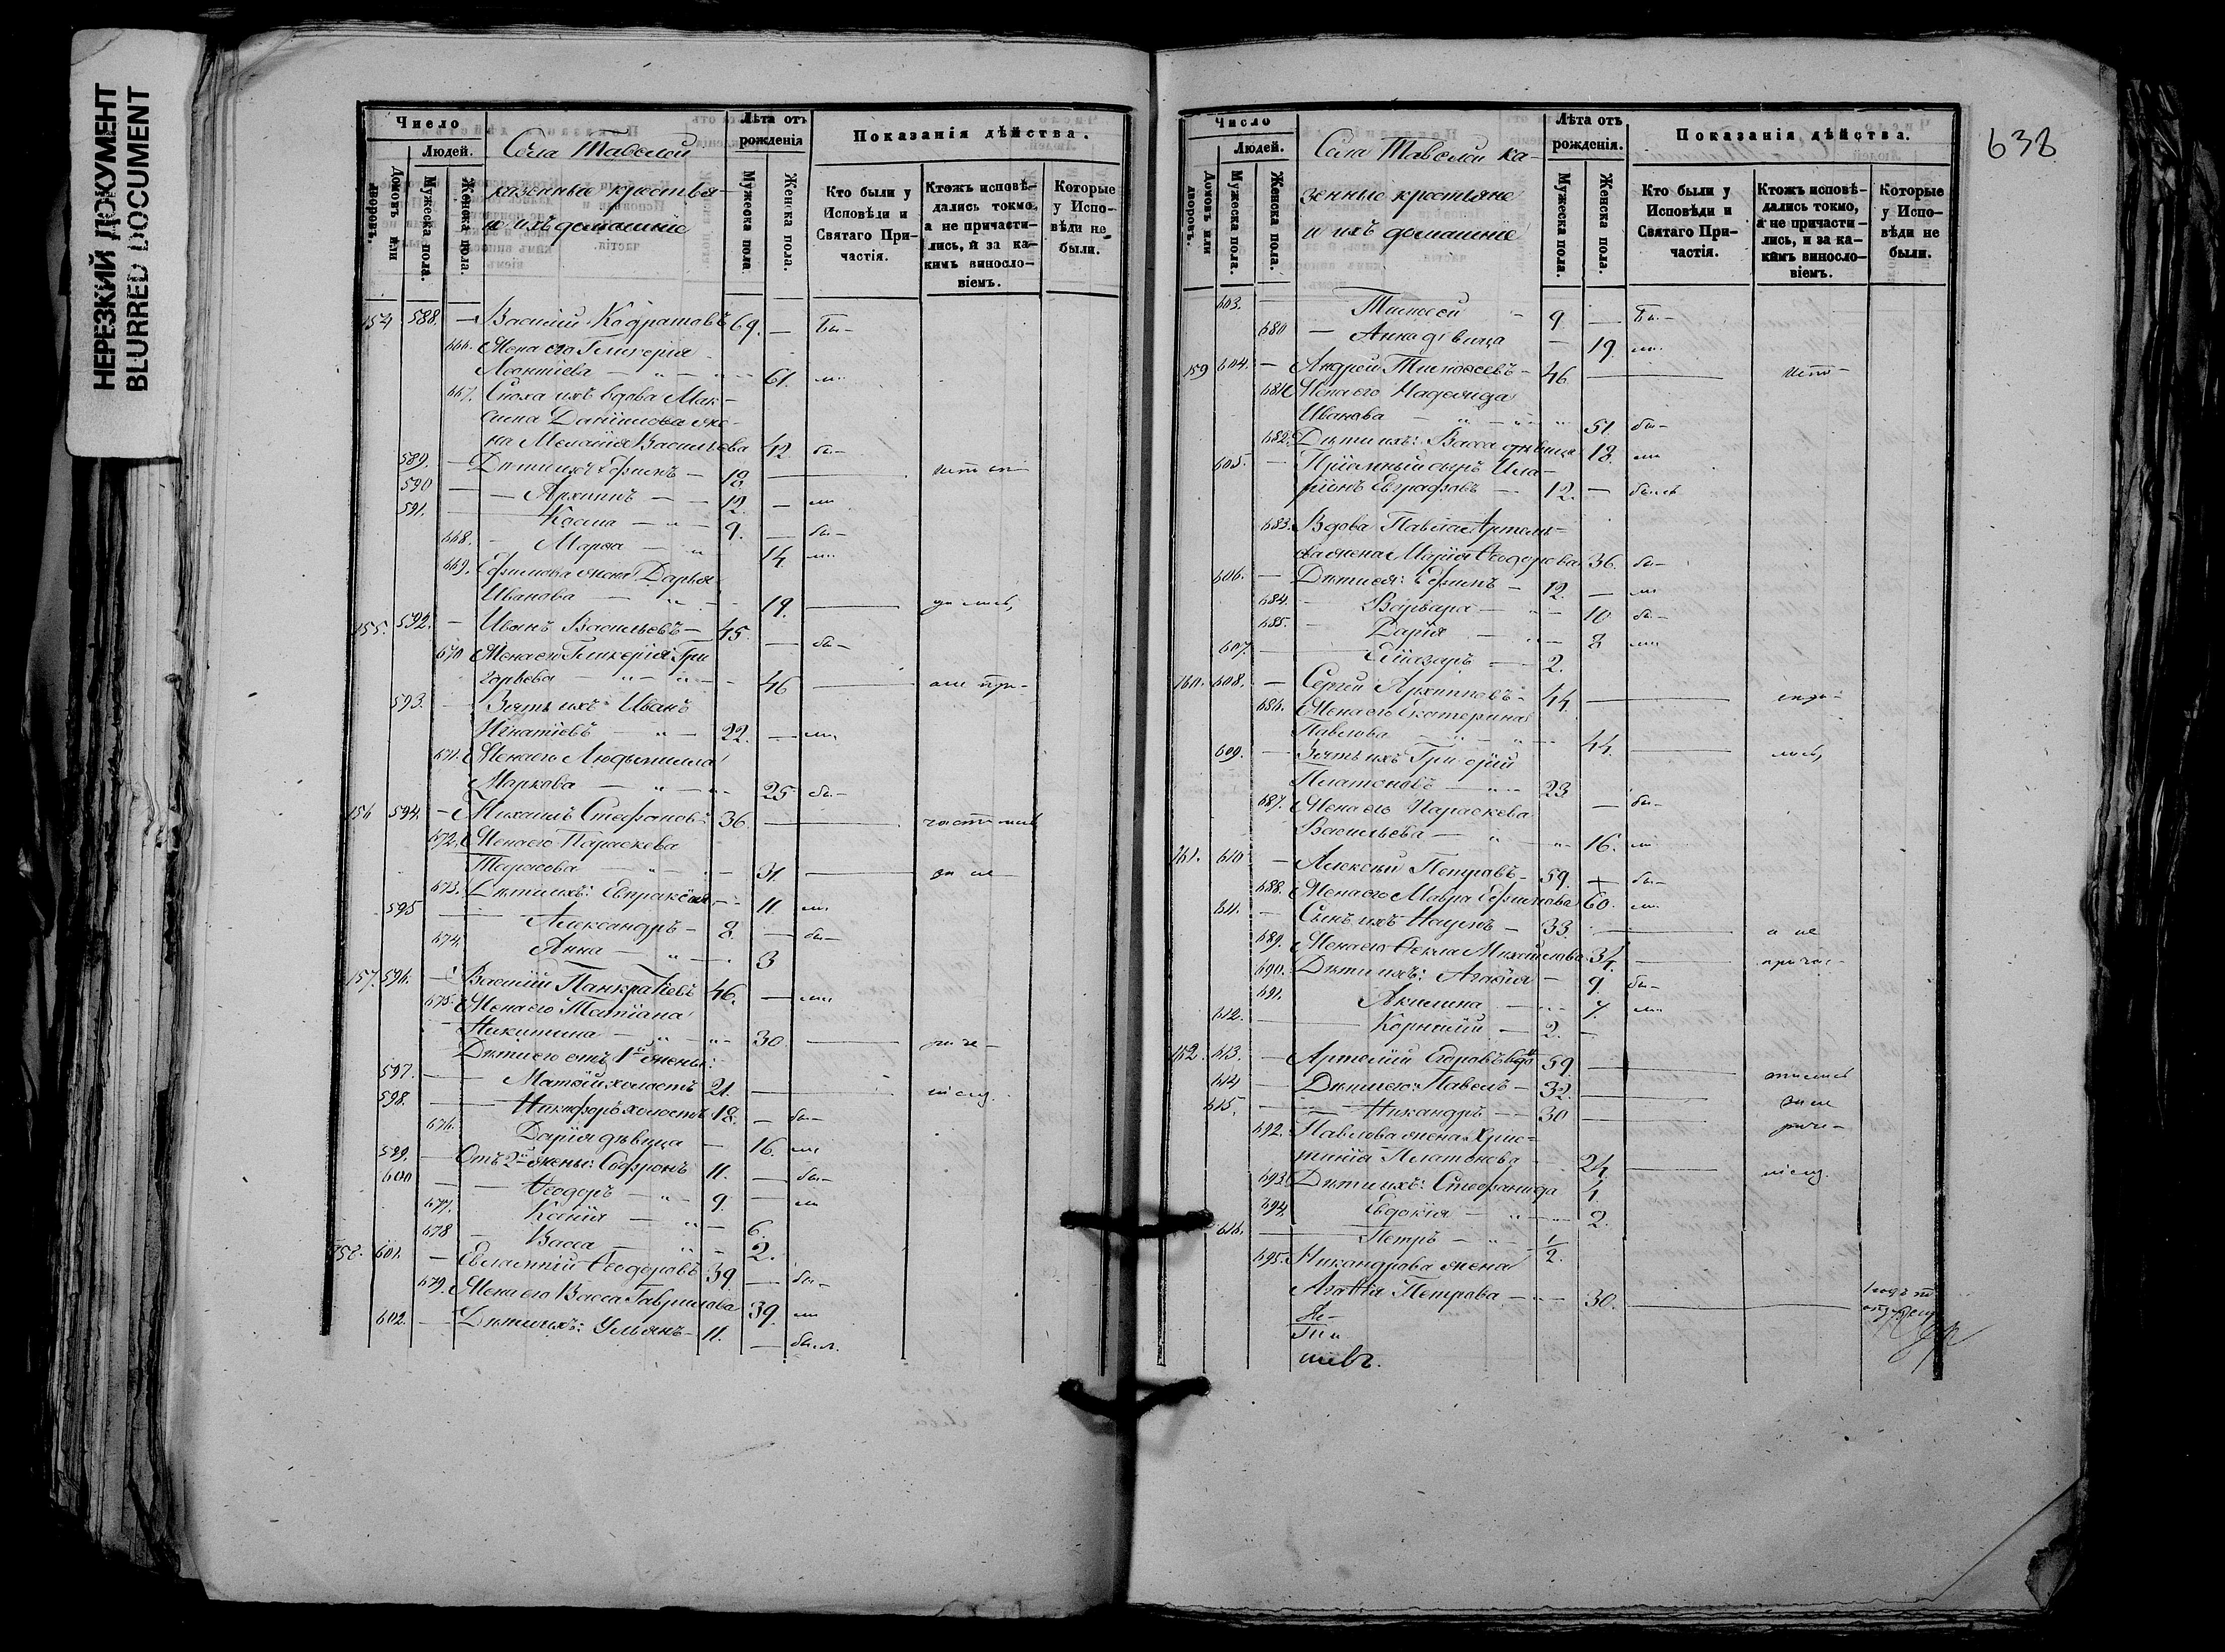 НЕРЕЗКИЙ ДОКУМЕНТ
BLURRED DOCUMENT
Число
Людей.
Домовъ или дворовъ.
Мужеска пола.
Женска пола.
Села Тавелей
казенные крестья-
и ихъ домашніе
Лѣта отъ рожденія
Мужеска пола.
Женска пола.
Показанія дѣйства.
Кто были у Исповѣди и Святаго При-частія.
Ктожъ исповѣ-дались токмо, а не причасти-лись, и за ка-кимъ винosло-віемъ.
Которые у Испо-вѣди не были.
154 588. — Василій Кодратовъ 69. — Бы-
666. Жена его Гликерія
Леонтіева — 61. ли
667. Сноха ихъ вдова Мак-
сима Данилова же-
на Меланія Васильева 42 бы-
589. — Дѣти ихъ: Ефимъ — 18 —
590 — Архипъ — 12. — ли
591. — Косма — 9. — бы-
668. — Марѳа — 14. ли
669. Ефимова жена Дарья
Иванова — 19. —
155. 592. — Иванъ Васильевъ — 45. — бы-
670 Жена его Гликерія Гри
горьева — 46 —
593. — Зять ихъ Иванъ
Игнатіевъ — 22. — ли
671. Жена его Людъмила
Маркова — 25 бы-
156 594. — Михаилъ Стефановъ 36. —
672. Жена его Параскева
Тарасова — 31. —
673. Дѣти ихъ: Евпраксія — 11. ли
595 — Александръ — 8 — бы-
674. Анна — 3
157. 596. — Василій Панкратіевъ 46. — ли
675. Жена его Татіана
Никитина — 30. —
Дѣти его отъ 1й жены:
597. — Матѳій холостъ 21. —
598. — Никифоръ холостъ 18. — бы-
676. Дарія дѣвица — 16. ли
599. — Отъ 2й жены: Софронъ 11. — бы-
600 — Ѳеодоръ — 9. ли
677. Ксенія — 6.
678 — Васса — 2.
158. 601. — Евлампій Ѳеодоровъ 39 — бы-
679. Жена его Васса Гаврилова 39. ли
602. — Дѣти ихъ: Ульянъ — 11. — были.
638
Число
Людей.
Домовъ или дворовъ.
Мужеска пола.
Женска пола.
Села Тавелей ка-
зенные крестьяне
и ихъ домашніе
Лѣта отъ рожденія.
Мужеска пола.
Женска пола.
Показанія дѣйства.
Кто были у Исповѣди и Святаго При-частія.
Ктожъ исповѣ-дались токмо, а не причасти-лись, и за ка-кимъ винosло-віемъ.
Которые у Испо-вѣди не были.
603. — Тимоѳей 9 — Бы-
680 — Анна дѣвица — 19. ли
159 604. — Андрей Тимоѳеевъ — 46 —
681. Жена его Надежда
Иванова — 51. бы-
682. Дѣти ихъ: Васса дѣвица 18. ли
605. — Пріемный сынъ Ила-
ріонъ Евграфовъ — 12. — былъ
683. Вдова Павла Артемь-
ева жена Марія Ѳеодорова 36. бы-
606. — Дѣти ея: Ефимъ — 12. — ли
684. — Варвара — 10 бы-
685. — Дарія — 8 ли
607. — Еліазаръ — 2.
160. 608. — Сергей Архиповъ — 44. —
686. Жена его Екатерина
Павлова — 44. —
609. — Зять ихъ Григорій
Платоновъ — 23 — бы-
687. Жена его Параскева
Васильева — 16. ли
161. 610 — Алексѣй Петровъ — 59. бы-
688. Жена его Мавра Ефимова 60. ли
611. — Сынъ ихъ Наумъ — 33. — а не
689. Жена его Ѳекла Михайлова 34. — причас-
690. Дѣти ихъ: Агафія — 9. бы-
691. Акилина — 7 ли
612. — Корнилій — 2. —
162. 613. — Артемій Егоровъ вдв 59. —
614 — Дѣти его: Павелъ — 32. —
615. — Никандръ — 30 —
692. Павлова жена Хрис-
тинія Платонова — 24. —
693. Дѣти ихъ: Стефанида 4.
694. Евдокія — 2.
616. — Петръ — 1/2.
695. Никандрова жена
Агафія Петрова — 30. —